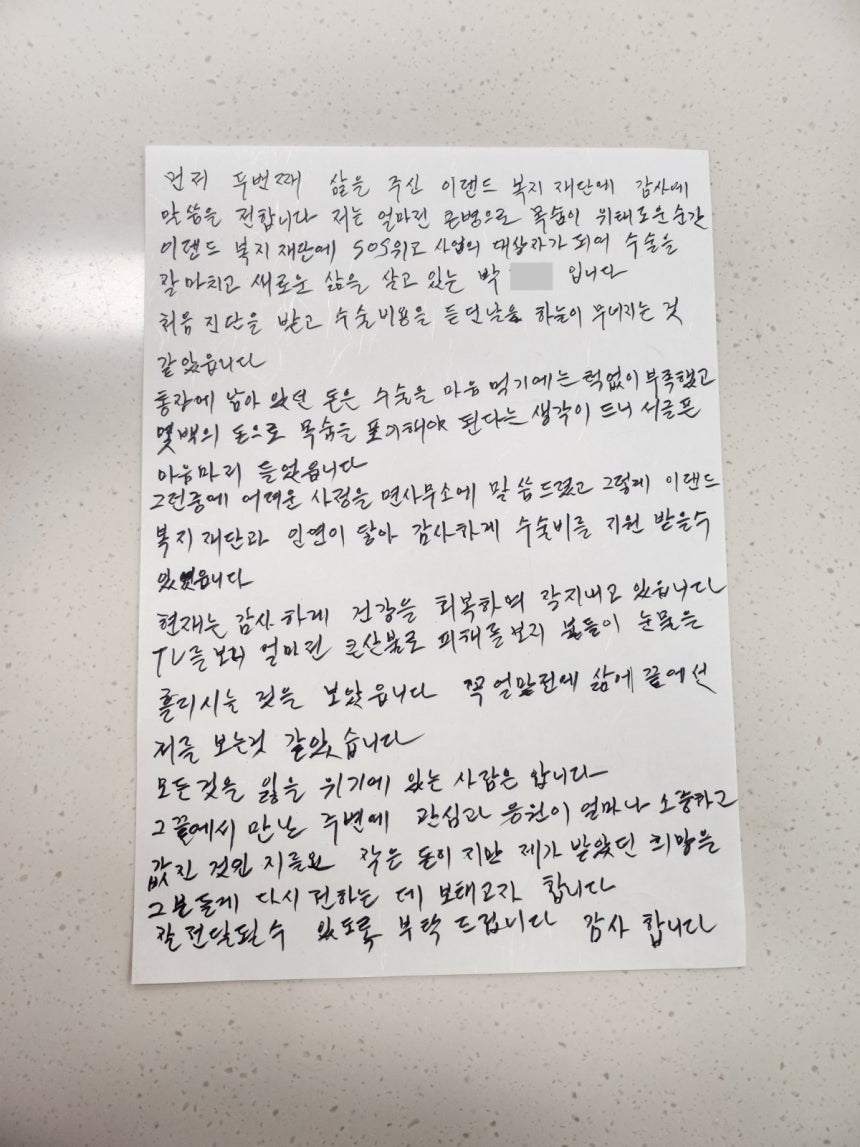 먼저 두번째 삶을 주신 이랜드 복지 재단에 감사에
말씀을 전합니다 저는 얼마전 큰병으로 목숨이 위태로운 순간
이랜드 복지 재단에 SOS위고 사업의 대상자가 되어 수술을
잘 마치고 새로운 삶을 살고 있는 박 입니다
처음 진단을 받고 수술비용을 듣던날은 하늘이 무너지는 것
같았읍니다
통장에 남아 있던 돈은 수술을 마음 먹기에는 턱없이 부족했고
몇백의 돈으로 목숨을 포기해야 된다는 생각이 드니 서글픈
마음마저 들었읍니다
그런중에 어려운 사정을 면사무소에 말씀드렸고 그렇게 이랜드
복지 재단과 인연이 닿아 감사하게 수술비를 지원 받을수
있었읍니다
현재는 감사하게 건강을 회복하며 잘지내고 있읍니다
TV를 보니 얼마전 큰산불로 피해를 보신 분들이 눈물을
흘리시는 것을 보았읍니다 꼭 얼마전에 삶에 끝에선
저를 보는것 같았습니다
모든것을 잃을 위기에 있는 사람은 압니다
그끝에서 만난 주변에 관심과 응원이 얼마나 소중하고
값진 것인 지를요 작은 돈이 지만 제가 받았던 희망을
그분들게 다시 전하는 데 보태고자 합니다
잘전달될수 있도록 부탁 드립니다 감사 합니다